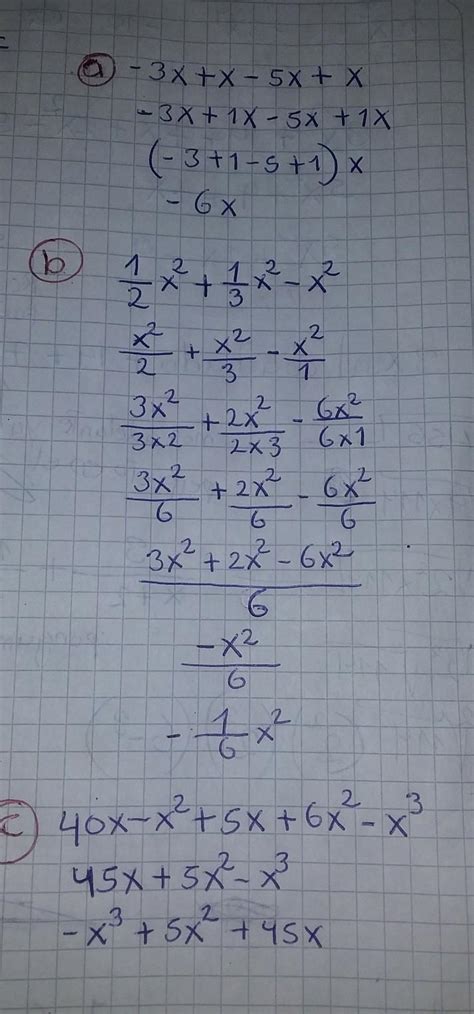 a) -3x+x-5x+x
-3x+1x-5x+1x
(-3+1-5+1)x
-6x
b) 1/2 x² + 1/3 x² - x²
x²/2 + x²/3 - x²/1
3x²/3x2 + 2x²/2x3 - 6x²/6x1
3x²/6 + 2x²/6 - 6x²/6
3x² + 2x² - 6x²/6
-x²/6
- 1/6 x²
c) 40x-x²+5x+6x²-x³
45x+5x²-x³
-x³+5x²+45x